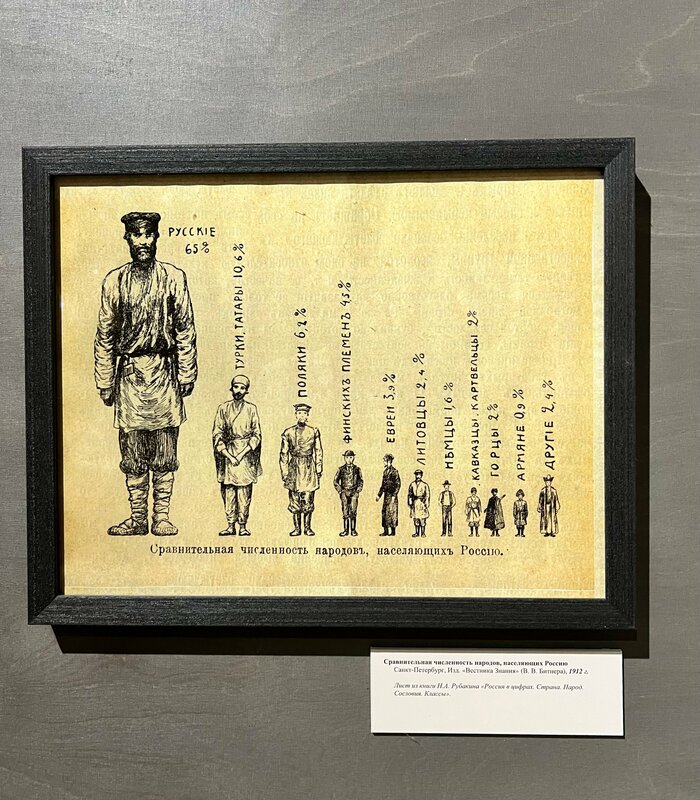 РУССКІЕ
65%
ТУРКИ, ТАТАРЫ 10,6%
ПОЛЯКИ 6,2%
ФИНСКИХЪ ПЛЕМЕНЪ 4,5%
ЕВРЕИ 3,9%
ЛИТОВЦЫ 2,4%
НѢМЦЫ 1,6%
КАВКАЗЦЫ, КАРТВЕЛЬЦЫ 2%
ГОРЦЫ 2%
АРМЯНЕ 0,9%
ДРУГІЕ 2,4%
Сравнительная численность народовъ, населяющихъ Россію.
Сравнительная численность народов, населяющих Россию
Санкт-Петербург, Изд. «Вестника Знания» (В. В. Битнера), 1912 г.
Лист из книги Н.А. Рубакина «Россия в цифрах. Страна. Народ.
Сословия. Классы».